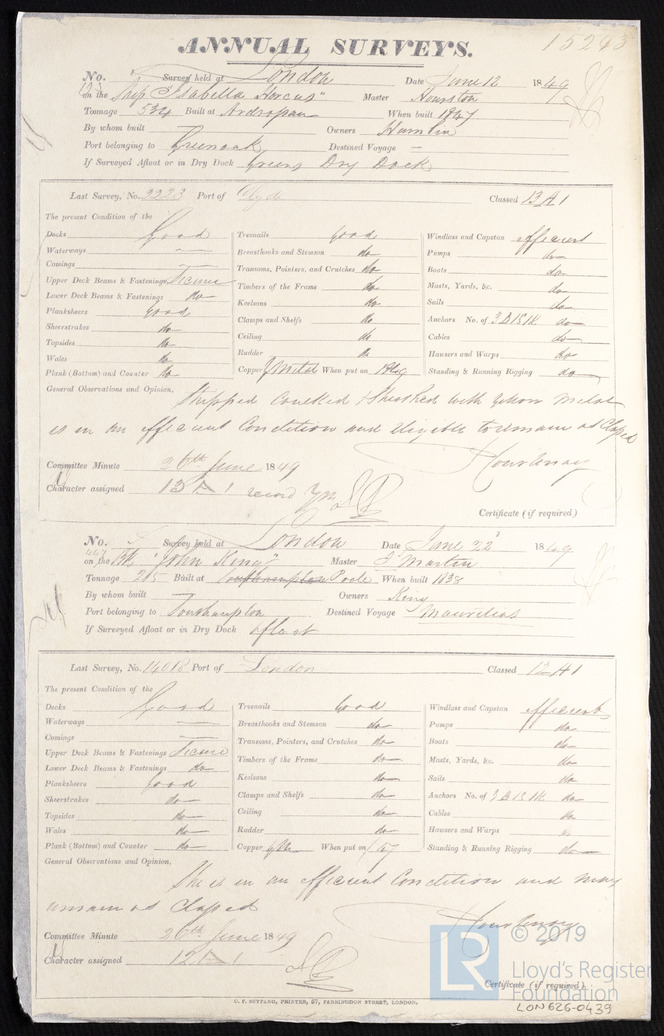 15243
ANNUAL SURVEYS.
No. Survey held at London Date June 12 1849
on the Ship "Isabella Hercus" Master Houston
Tonnage 534 Built at Androssan When built 1847
By whom built Owners Hamlin
Port belonging to Greenock Destined Voyage —
If Surveyed Afloat or in Dry Dock Greens Dry Dock
Last Survey, No. 2233 Port of Clyde Classed 13 A 1
The present Condition of the
Decks Good Treenails Good Windlass and Capstan efficient
Waterways — Breasthooks and Stemson do Pumps do
Comings — Transoms, Pointers, and Crutches do Boats do
Upper Deck Beams & Fastenings Secure Timbers of the Frame do Masts, Yards, &c. do
Lower Deck Beams & Fastenings do Keelsons do Sails do
Planksheers Good Clamps and Shelfs do Anchors No. of 3 B 1 S 1 K do
Sheerstrakes do Ceiling do Cables do
Topsides do Rudder do Hawsers and Warps do
Wales do Copper Y Metal When put on Standing & Running Rigging do
Plank (Bottom) and Counter do
General Observations and Opinion, Stripped Caulked & Sheathed with Yellow Metal
is in an efficient Condition and Eligible to remain as Classed
Courtenay
Committee Minute 26th June 1849
Character assigned 13 A 1 record
Certificate (if required)
No. Survey held at London Date June 22 1849
on the Bk "John King" Master J Martin
Tonnage 215 Built at Southampton Poole When built 1838
By whom built Owners King
Port belonging to Southampton Destined Voyage Mauritius
If Surveyed Afloat or in Dry Dock afloat
Last Survey, No. 14018 Port of London Classed 12 A 1
The present Condition of the
Decks Good Treenails Good Windlass and Capstan efficient
Waterways — Breasthooks and Stemson do Pumps do
Comings — Transoms, Pointers, and Crutches do Boats do
Upper Deck Beams & Fastenings Secure Timbers of the Frame do Masts, Yards, &c. do
Lower Deck Beams & Fastenings do Keelsons do Sails do
Planksheers Good Clamps and Shelfs do Anchors No. of 3 B 1 S 1 K do
Sheerstrakes do Ceiling do Cables do
Topsides do Rudder do Hawsers and Warps
Wales do Copper When put on 47 Standing & Running Rigging do
Plank (Bottom) and Counter do
General Observations and Opinion,
She is in an efficient Condition and may
remain as Classed
Courtenay
Committee Minute 26th June 1849
Character assigned 12 A 1
Certificate (if required)
C. F. SEYFANG, PRINTER, 57, FARRINGDON STREET, LONDON.
LR © 2019
Lloyd's Register
Foundation
LON626-0439